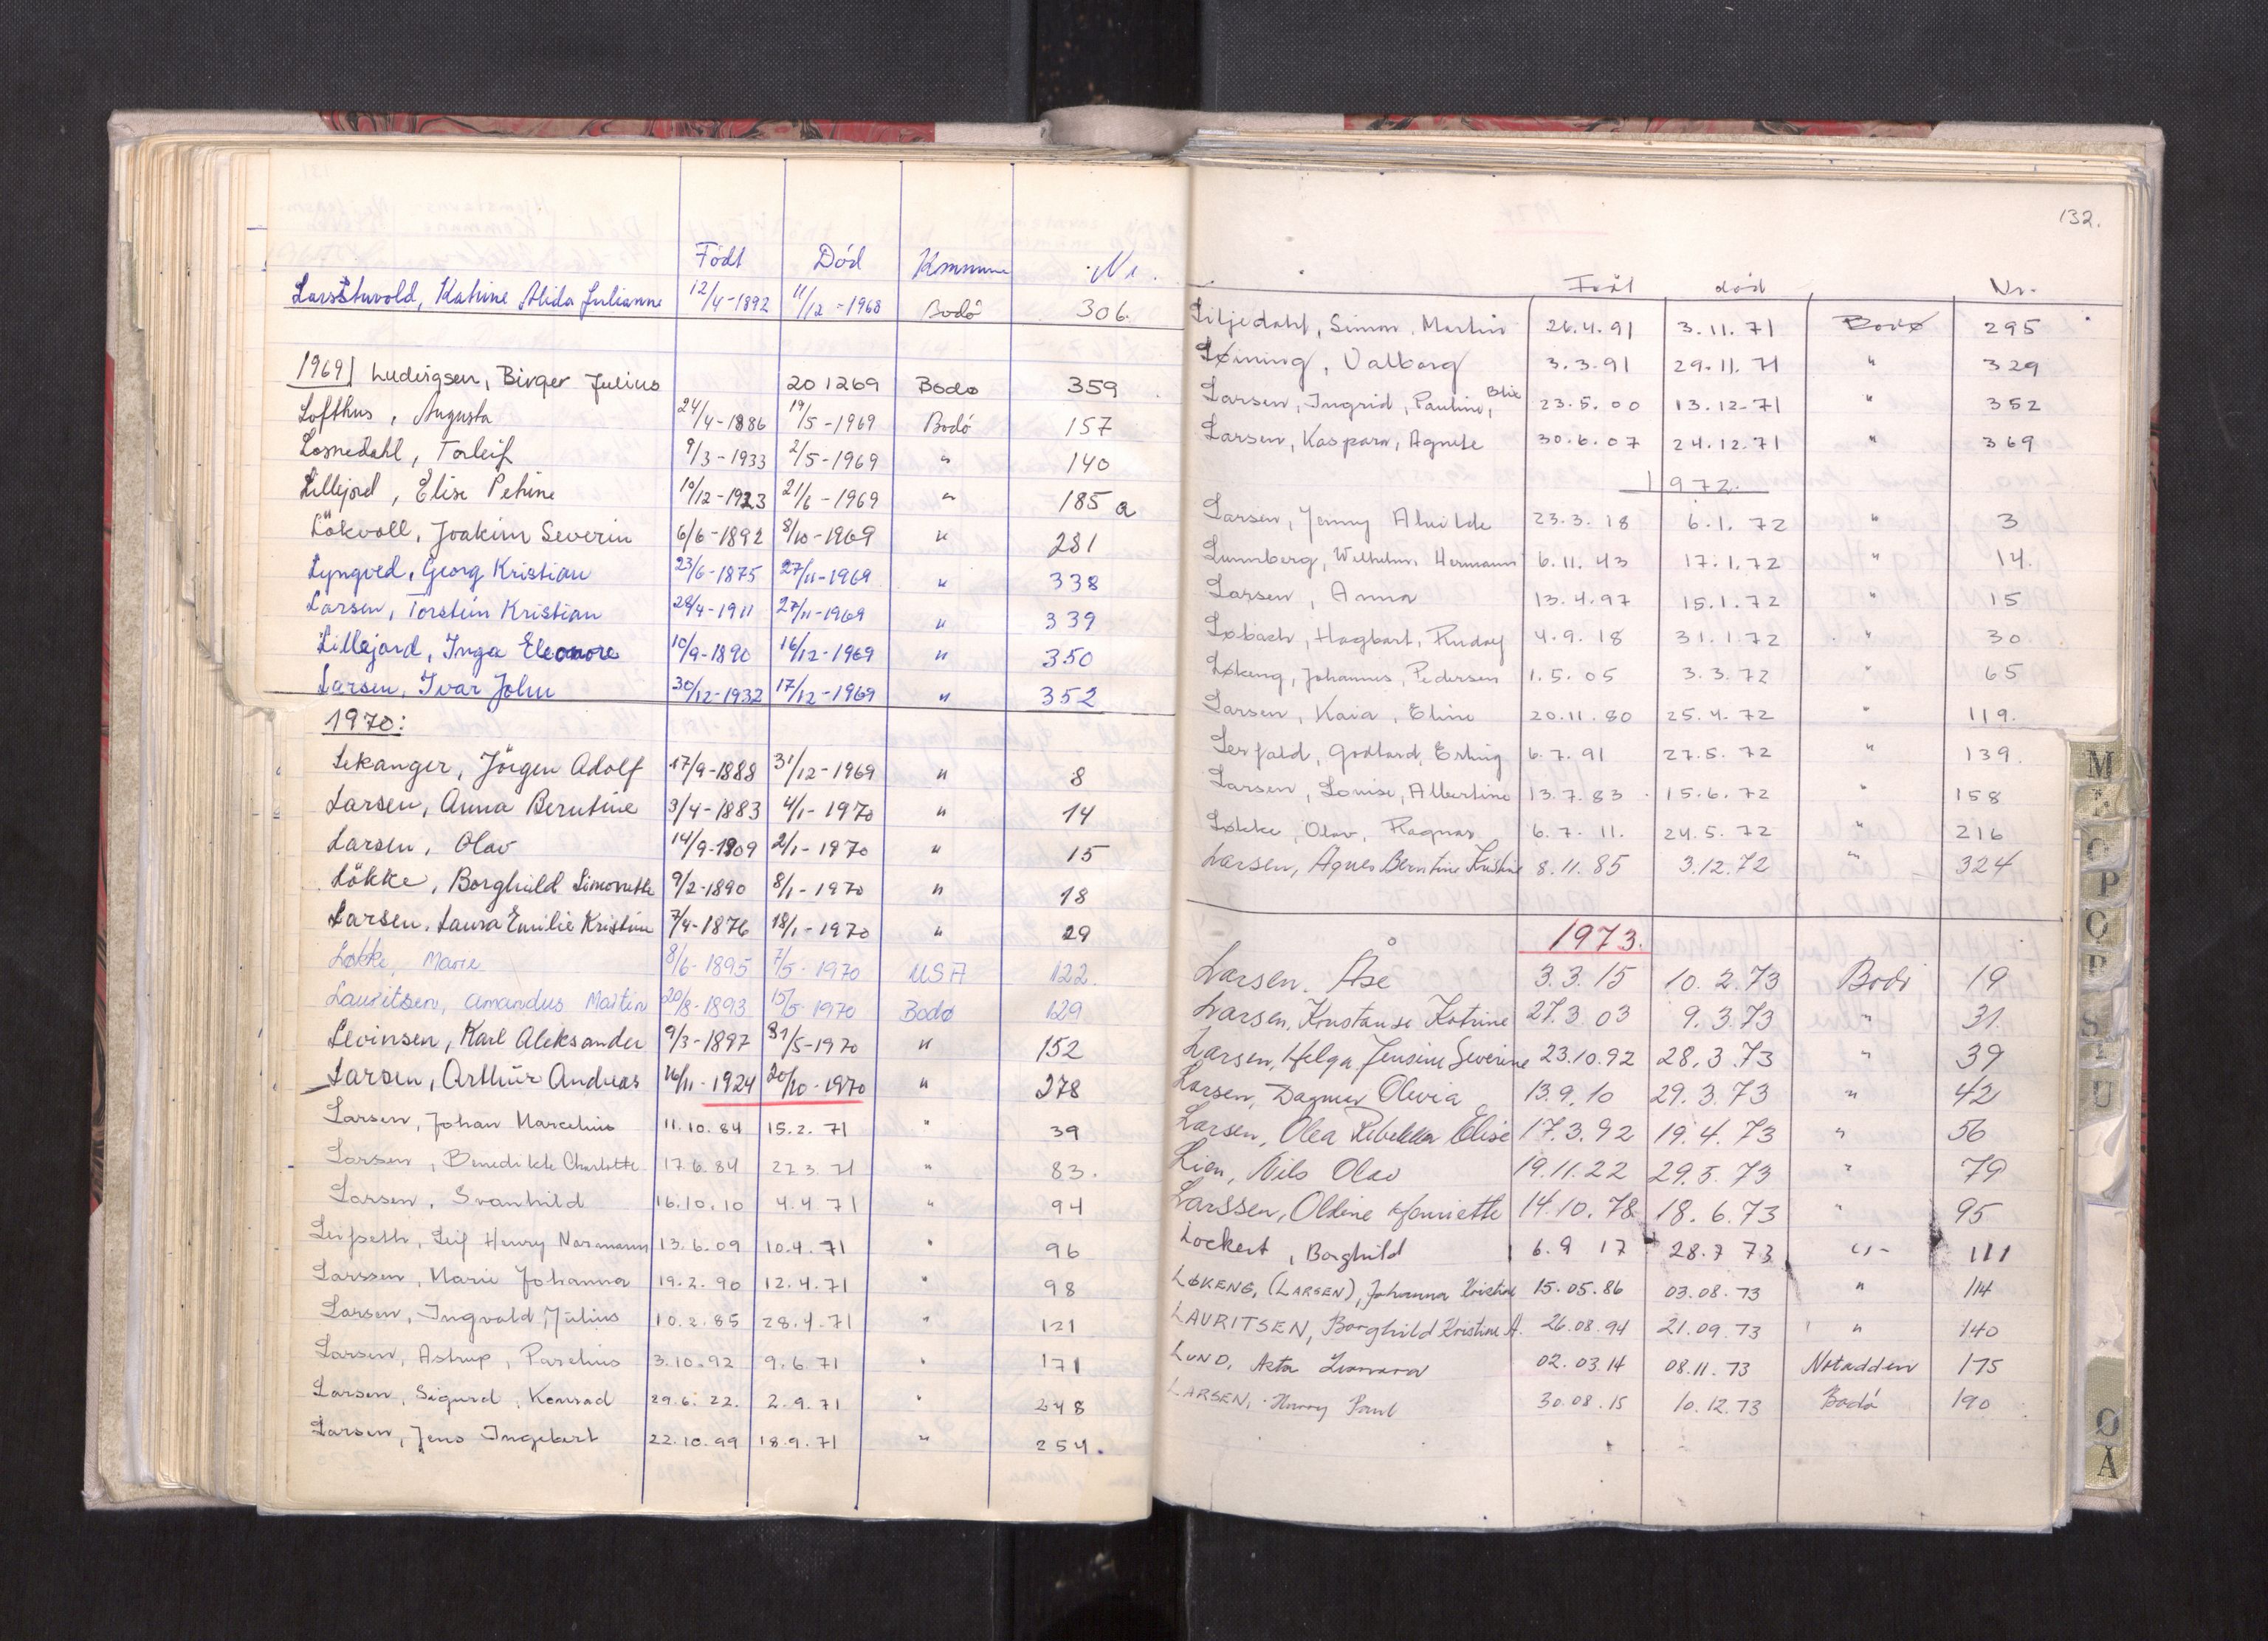 Født Død Kommune Nr.
Larsstuvold, Katrine Alida Julianne 12/4-1892 11/12-1968 Bodö 306.
1969 Ludvigsen, Birger Julius 20 12 69 Bodø 359
Lofthus, Augusta 24/4-1886 19/5-1969 Bodö 157
Losnedahl, Torleif 9/3-1933 2/5-1969 " 140
Lillejord, Elise Petrine 10/12-1923 21/6-1969 " 185 a
Lökvoll, Joakim Severin 6/6-1892 8/10-1969 " 281
Lyngved, Georg Kristian 23/6-1875 27/11-1969 " 338
Larsen, Torstein Kristian 28/4-1911 27/11-1969 " 339
Lillejord, Inga Eleonore 10/9-1890 16/12-1969 " 350
Larsen, Ivar John 30/12-1932 17/12-1969 " 352
1970:
Lekanger, Jörgen Adolf 17/9-1888 31/12-1969 " 8
Larsen, Anna Berntine 3/4-1883 4/1-1970 " 14
Larsen, Olav 14/9-1909 2/1-1970 " 15
Lökke, Borghild Simonette 9/2-1890 8/1-1970 " 18
Larsen, Laura Emilie Kristine 7/4-1876 18/1-1970 " 29
Løkke, Marie 8/6-1895 7/5-1970 USA 122.
Lauritsen, Amandus Martin 20/8-1893 15/5-1970 Bodø 129
Levinsen, Karl Aleksander 9/3-1897 31/5-1970 " 152
Larsen, Arthur Andreas 16/11-1924 20/10-1970 " 278
Larsen, Johan Marcelius 11.10.84 15.2.71 " 39
Larsen, Benedikte Charlotte 17.6.84 27.3.71 " 83.
Larsen, Svanhild 16.10.10 4.4 71 " 94
Leifseth, Leif Henry Normann 13.6.09 10.4.71 " 96
Larssen, Marie Johanna 19.2.90 12.4.71 " 98
Larsen, Ingvald, Julius 10.2.85 28.4.71 " 121
Larsen, Astrup, Parelius 3.10.92 9.6.71 " 171
Larsen, Sigurd, Konrad 29.6.22. 2.9.71 " 248
Larsen, Jens Ingebert 22.10.99 18.9.71 " 254.
132.
Født død Nr.
Liljedahl, Simon, Martin 26.4.91 3.11.71 Bodø 295
Løining, Valborg 3.3.91 29.11.71 " 329
Larsen, Ingrid, Pauline, Blix 23.5.00 13.12.71 " 352
Larsen, Kaspara, Agnete 30.6.07 24.12.71 " 369
1972.
Larsen, Jenny Alvilde 23.3.18 6.1.72 " 3
Lunnberg, Wilhelm, Hermann 6.11.43 17.1.72 " 14.
Larsen, Anna 13.4.97 15.1.72 " 15
Løbach, Hagbart, Rudolf 4.9.18 31.1.72 " 30
Løkeng, Johannes, Pedersen 1.5.05 3.3.72 " 65
Larsen, Kaia, Eline 20.11.80 25.4.72 " 119.
Lerfald, Godtard, Erling 6.7.91 27.5.72 " 139.
Larsen, Louise, Albertine 13.7.83 15.6.72 " 158
Løkke, Olav, Ragnar 6.7.11. 24.5.72 " 216
Larsen, Agnes Berntine Kristine 8.11.85 3.12.72 " 324
1973.
Larsen. Åse 3.3.15 10.2.73 Bodö 19
Larsen, Konstanse Katrine 27.3.03 9.3.73 " 31
Larsen, Helga Jensine Severine 23.10.92 28.3.73 " 39
Larsen, Dagmar Olivia 13.9.10 29.3.73 " 42
Larsen, Olea Rebekka Elise 17.3.92 19.4.73 " 56
Lien, Nils Olav 19.11.22 29.5.73 " 79
Larssen, Oldine Henriette 14.10.78 18.6.73 " 95
Lockert, Borghild 6.9 17 28.7 73 " 111
LØKENG, (LARSEN), Johanna Kristine 15.05.86 03.08.73 " 114
LAURITSEN, Borghild Kristine A. 26.08.94 21.09.73 " 140
LUND, Asta Leonora 02.03.14 08.11.73 Notodden 175
LARSEN, Harry Paul 30.08.15 10.12.73 Bodö 190
M
O
P
Q
R
S
T
U
Ø
Å